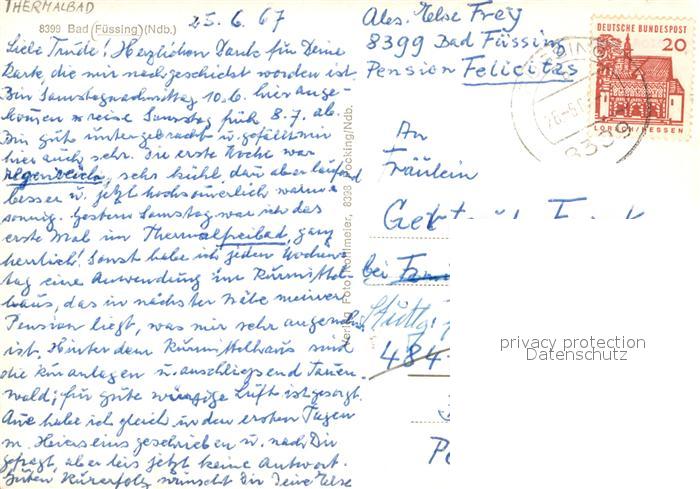 THERMALBAD
8399 Bad (Füssing) (Ndb.)
25.6.67
Liebe Trude! Herzlichen Dank für Deine
Karte, die mir nachgeschickt worden ist.
Bin Samstagnachmittag 10.6. hier ange-
kommen u. reise Samstag früh 8.7. ab.
Bin gut untergebracht u. gefällt mir
hier auch sehr. Die erste Woche war
regenreich, sehr kühl dann aber laufend
besser u. jetzt hochsommerlich warm u.
sonnig. Gestern Samstag war ich das
erste Mal im Thermalfreibad, ganz
herrlich! Sonst habe ich jeden Wochen-
tag eine Anwendung im Kurmittel-
haus, das in nächster Nähe meiner
Pension liegt, was mir sehr angenehm
ist. Hinter dem Kurmittelhaus sind
die Kuranlagen u. anschließend Tannen-
wald; für gute würzige Luft ist gesorgt.
habe ich gleich in den ersten Tagen
n. geschrieben u. nach Dir
gefragt, aber bis jetzt keine Antwort.
Guten Kurerfolg wünscht Dir Deine Else
Verlag Foto Kohlmeier, 8398 Pocking/Ndb.
Abs. Else Frey
8399 Bad Füssing
Pension Felicitas
DEUTSCHE BUNDESPOST
20
LORSCH/HESSEN
8399
An
Fräulein
bei
484
privacy protection
Datenschutz